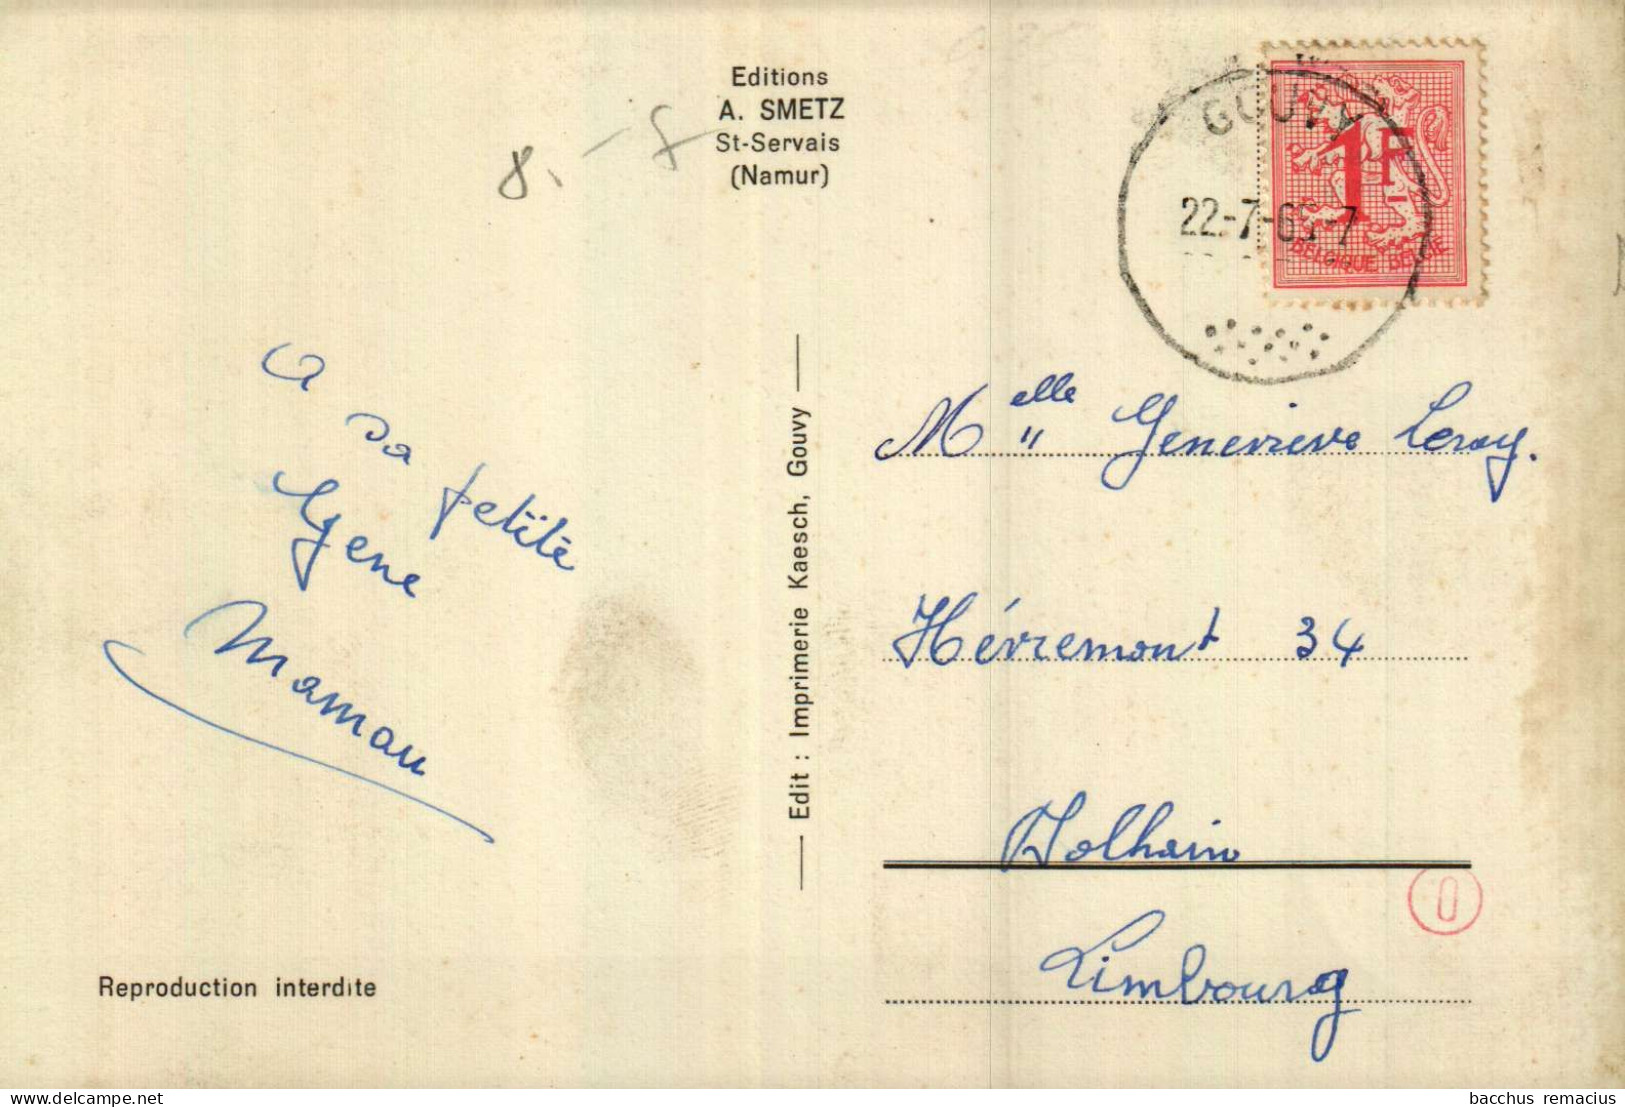 Editions
A. SMETZ
St-Servais
(Namur)
8.-
GOUVY
22.-7-69-7
1F
BELGIQUE BELGIE
A
sa petite
Gene
Maman
Edit : Imprimerie Kaesch, Gouvy
Melle Genevieve Leroy.
Hévremont 34
Dolhain
Limbourg
0
Reproduction interdite
delcampe.net
bacchus remacius